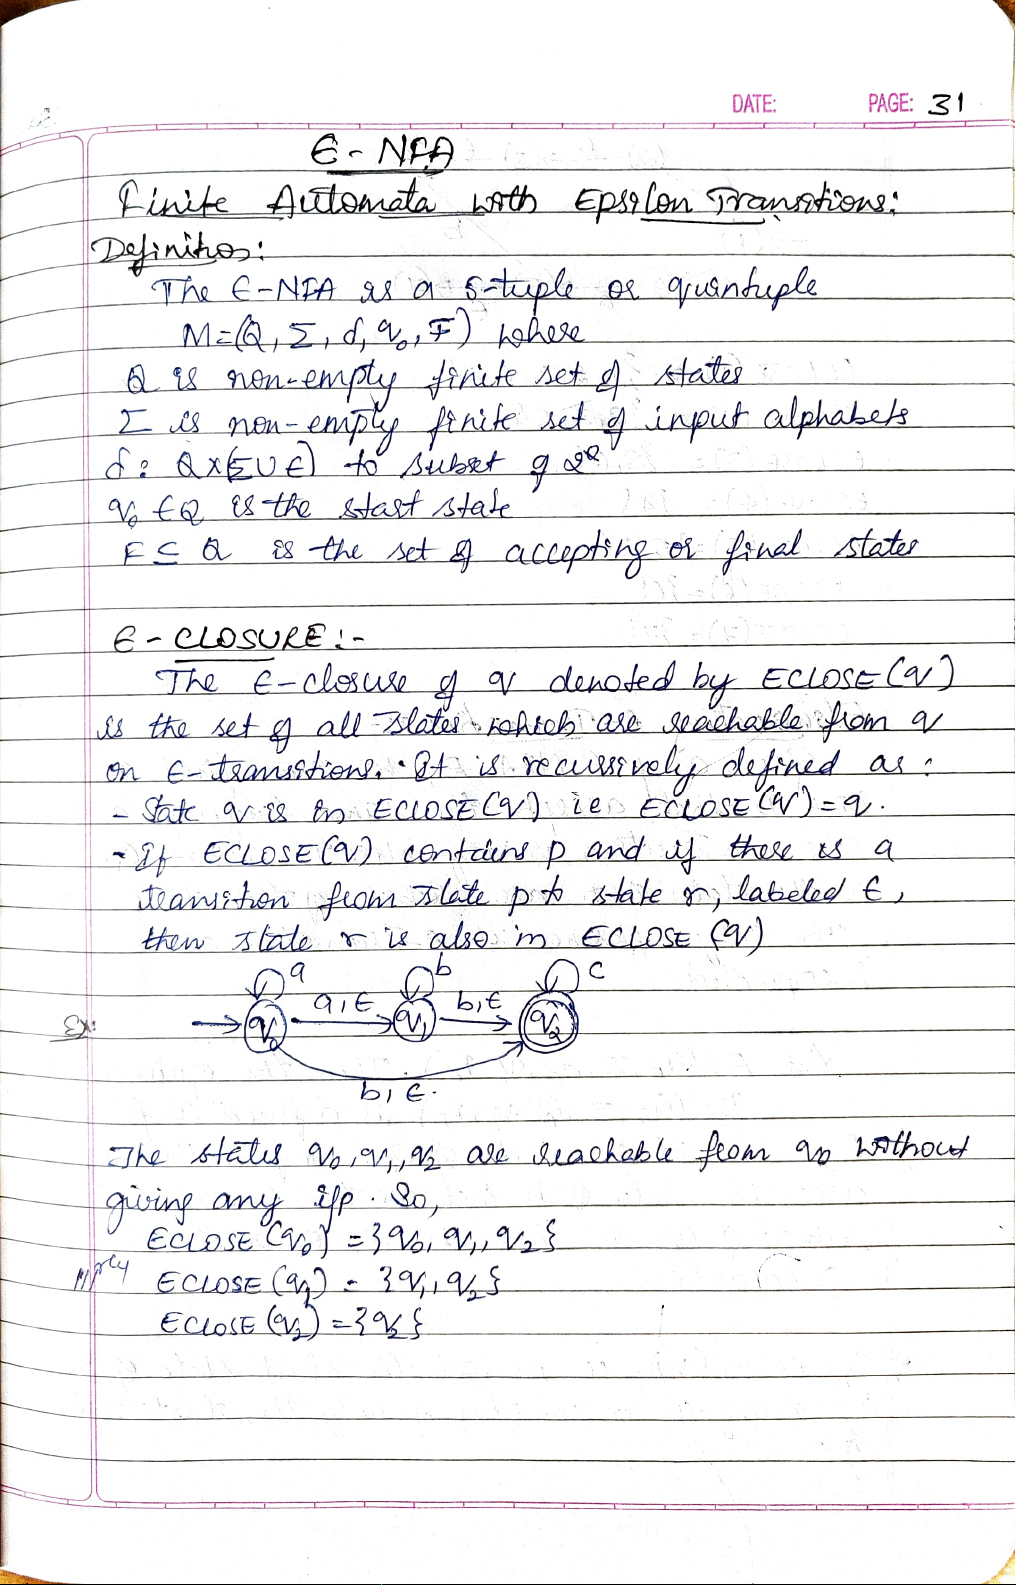 DATE: PAGE: 31
ϵ - NFA
Finite Automata with Epsilon Transitions:
Definitios:
The ϵ-NFA is a 5-tuple or quintuple
M=(Q, Σ, δ, q₀, F) where
Q is non-empty finite set of states
Σ is non-empty finite set of input alphabets
δ: Q×(Σ∪ϵ) to subset of 2^Q
q₀ ∈ Q is the start state
F ⊆ Q is the set of accepting or final states
ϵ - CLOSURE :-
The ϵ-closure of q denoted by ECLOSE(q)
is the set of all states which are reachable from q
on ϵ-transitions. It is recursively defined as:
- State q is in ECLOSE(q) ie ECLOSE(q)=q.
- If ECLOSE(q) contains p and if there is a
transition from state p to state r, labeled ϵ,
then state r is also in ECLOSE (q)
a b c
a, ϵ b, ϵ
Ex: q₀ q₁ q₂
b, ϵ.
The states q₀, q₁, q₂ are reachable from q₀ without
giving any i/p. So,
ECLOSE (q₀) = {q₀, q₁, q₂}
ECLOSE (q₁) = {q₁, q₂}
ECLOSE (q₂) = {q₂}